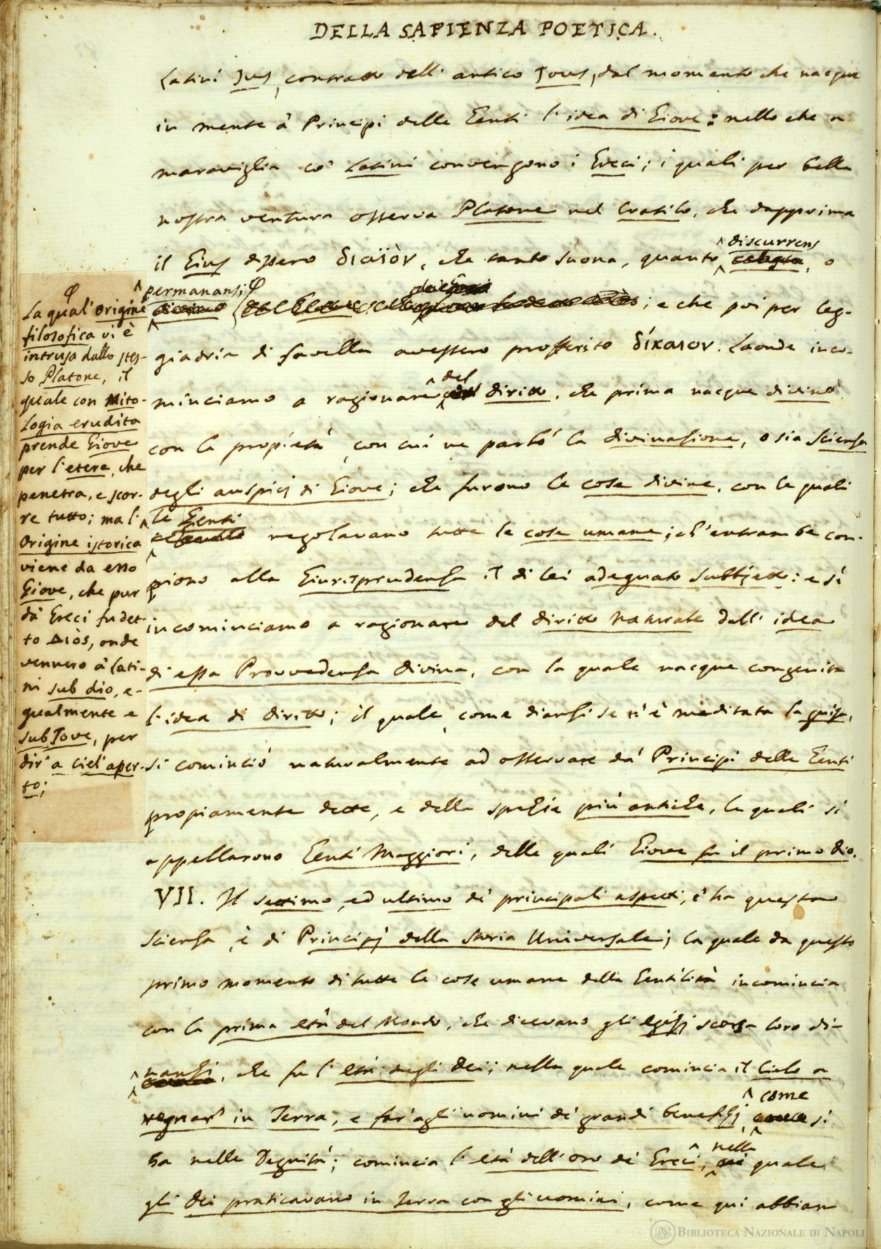 DELLA SAPIENZA POETICA.
Latini Jus, contratto dell' antico Jous, dal momento che nacque
in mente a' Principi delle Genti l'idea di Giove: nello che a
maraviglia co' Latini convengono i Greci; i quali per bella
nostra ventura osserva Platone nel Cratilo, che dapprima
discurrens
il Gius dissero διαϊὸν, che tanto suona, quanto o
permanans;
; e che poi per leg-
giadria di favella avessero profferito δίκαιον. Laonde inco-
minciamo a ragionare del diritto, che prima nacque divino
con la propietà, con cui ne parlò la divinazione, o sia Scienza
degli auspicj di Giove; che furono le cose divine, con le quali
le Genti regolavano tutte le cose umane; ch'entrambe com-
piono alla Giurisprudenza il di lei adeguato subbjetto: e sì
incominciamo a ragionare del diritto naturale dall' idea
di essa Provvedenza divina, con la quale nacque congenita
l'idea di diritto; il quale, come dianzi se n'è meditata la guisa,
si cominciò naturalmente ad osservare da' Principi delle Genti
propiamente dette, e della spezie più antiche, le quali si
appellarono Genti Maggiori, delle quali Giove fu il primo dio.
VII. Il settimo, ed ultimo de' principali aspetti, c'ha questa
Scienza, è di Principj della Storia Universale; la quale da questo
primo momento di tutte le cose umane della Gentilità incomincia
con la prima età del Mondo, che dicevano gli Egizj scorsa loro di-
nanzi, che fu l'età degli dei; nella quale comincia il Cielo a
regnar' in Terra, e far' agli uomini de' grandi benefizj, come si
ha nelle Degnità; comincia l'età dell'oro de' Greci, nella quale
gli dei praticavano in terra con gli uomini, come qui abbiam
φ
La qual'origine
filosofica vi è
intrusa dallo stes-
so Platone, il
quale con mito-
logia erudita
prende Giove
per l'etere, che
penetra, e scor-
re tutto; ma l'
origine istorica
viene da esso
Giove, che pur
da' Greci fu det-
to Διὸς, onde
vennero a' lati-
ni sub dio, e-
gualmente e
sub Jove, per
dir' a ciel' aper-
to;
BIBLIOTECA NAZIONALE DI NAPOLI